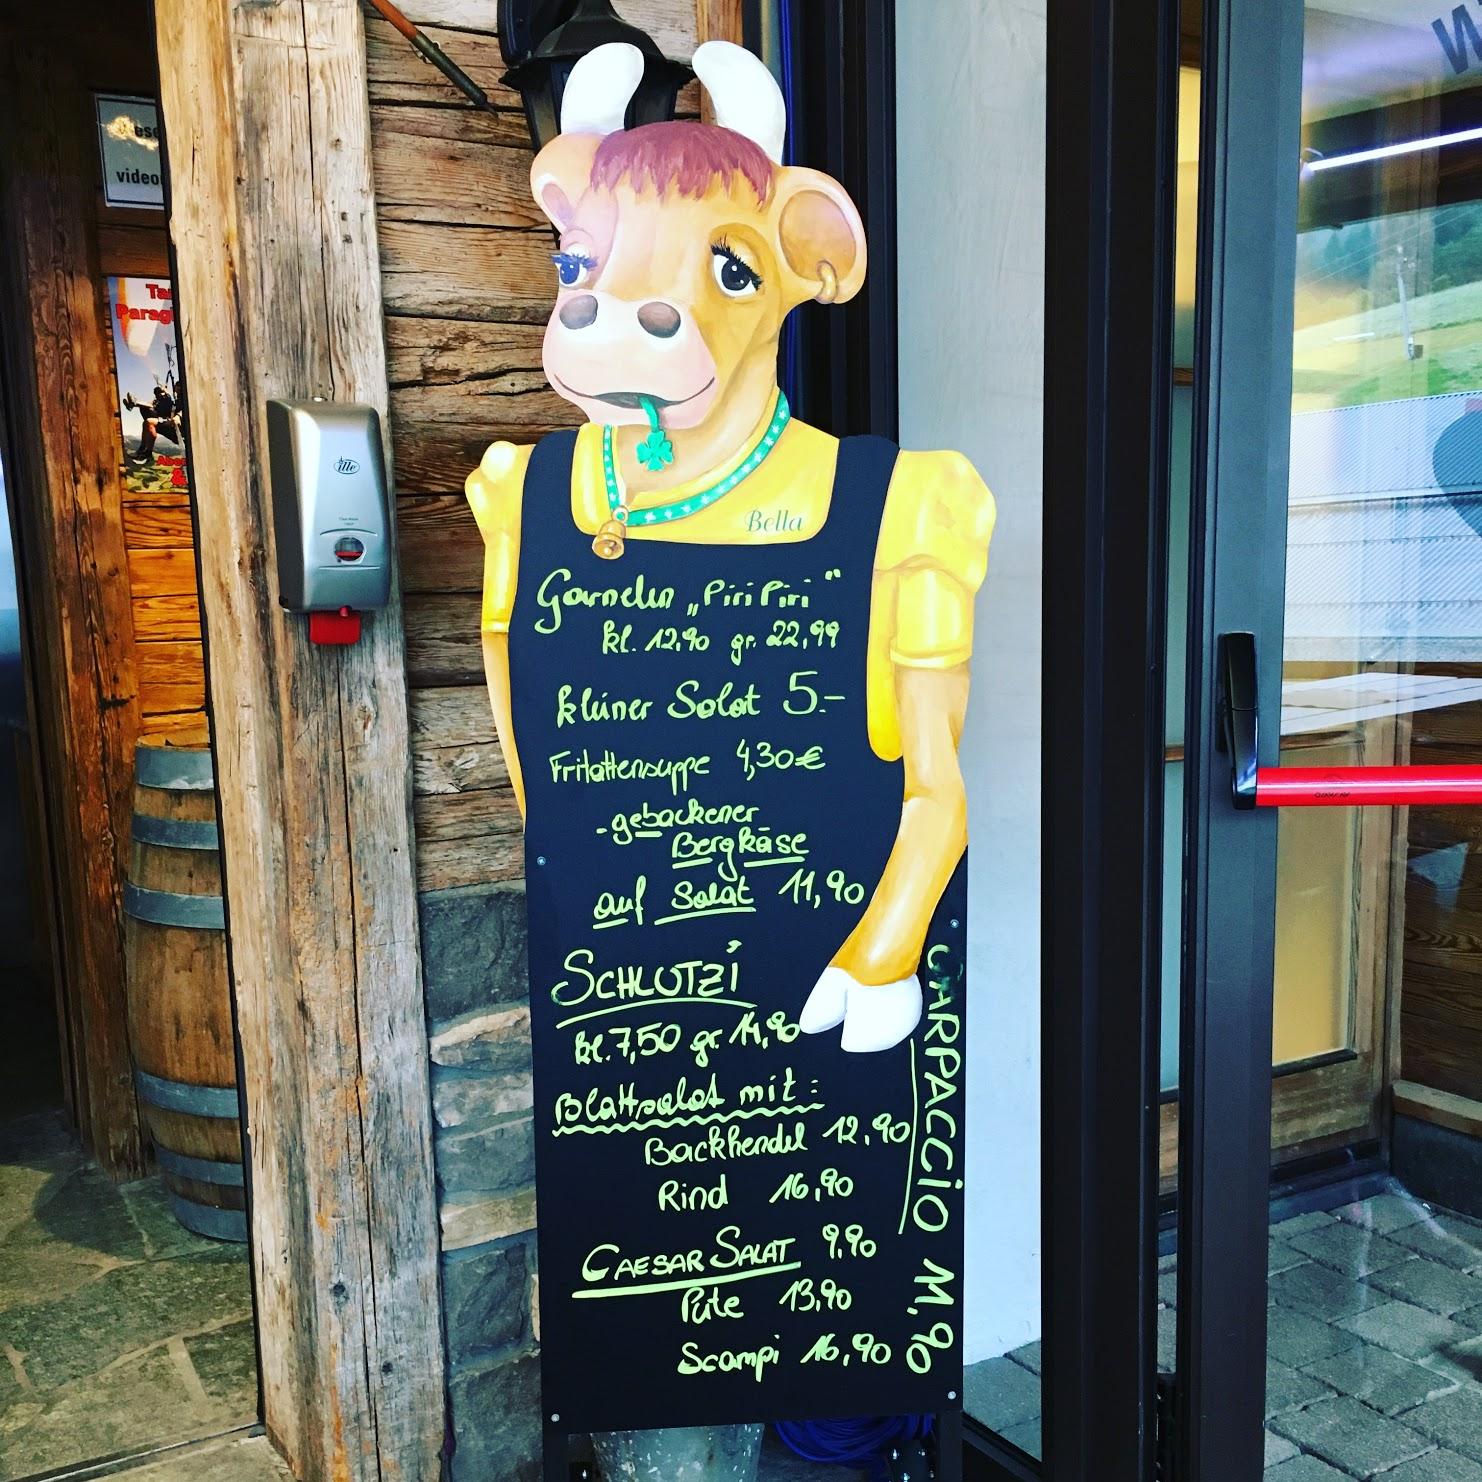 Bella
Garnelen „Piri Piri“
kl. 12,90 gr. 22,99
kleiner Salat 5.-
Frittattensuppe 4,30€
- gebackener
Bergkäse
auf Salat 11,90
SCHLUTZI
kl. 7,50 gr. 14,90
Blattsalat mit:
Backhendl 12,90
Rind 16,90
CAESAR SALAT 9,90
Pute 13,90
Scampi 16,90
CARPACCIO 14,90
video
Ta
Parag
ille
W